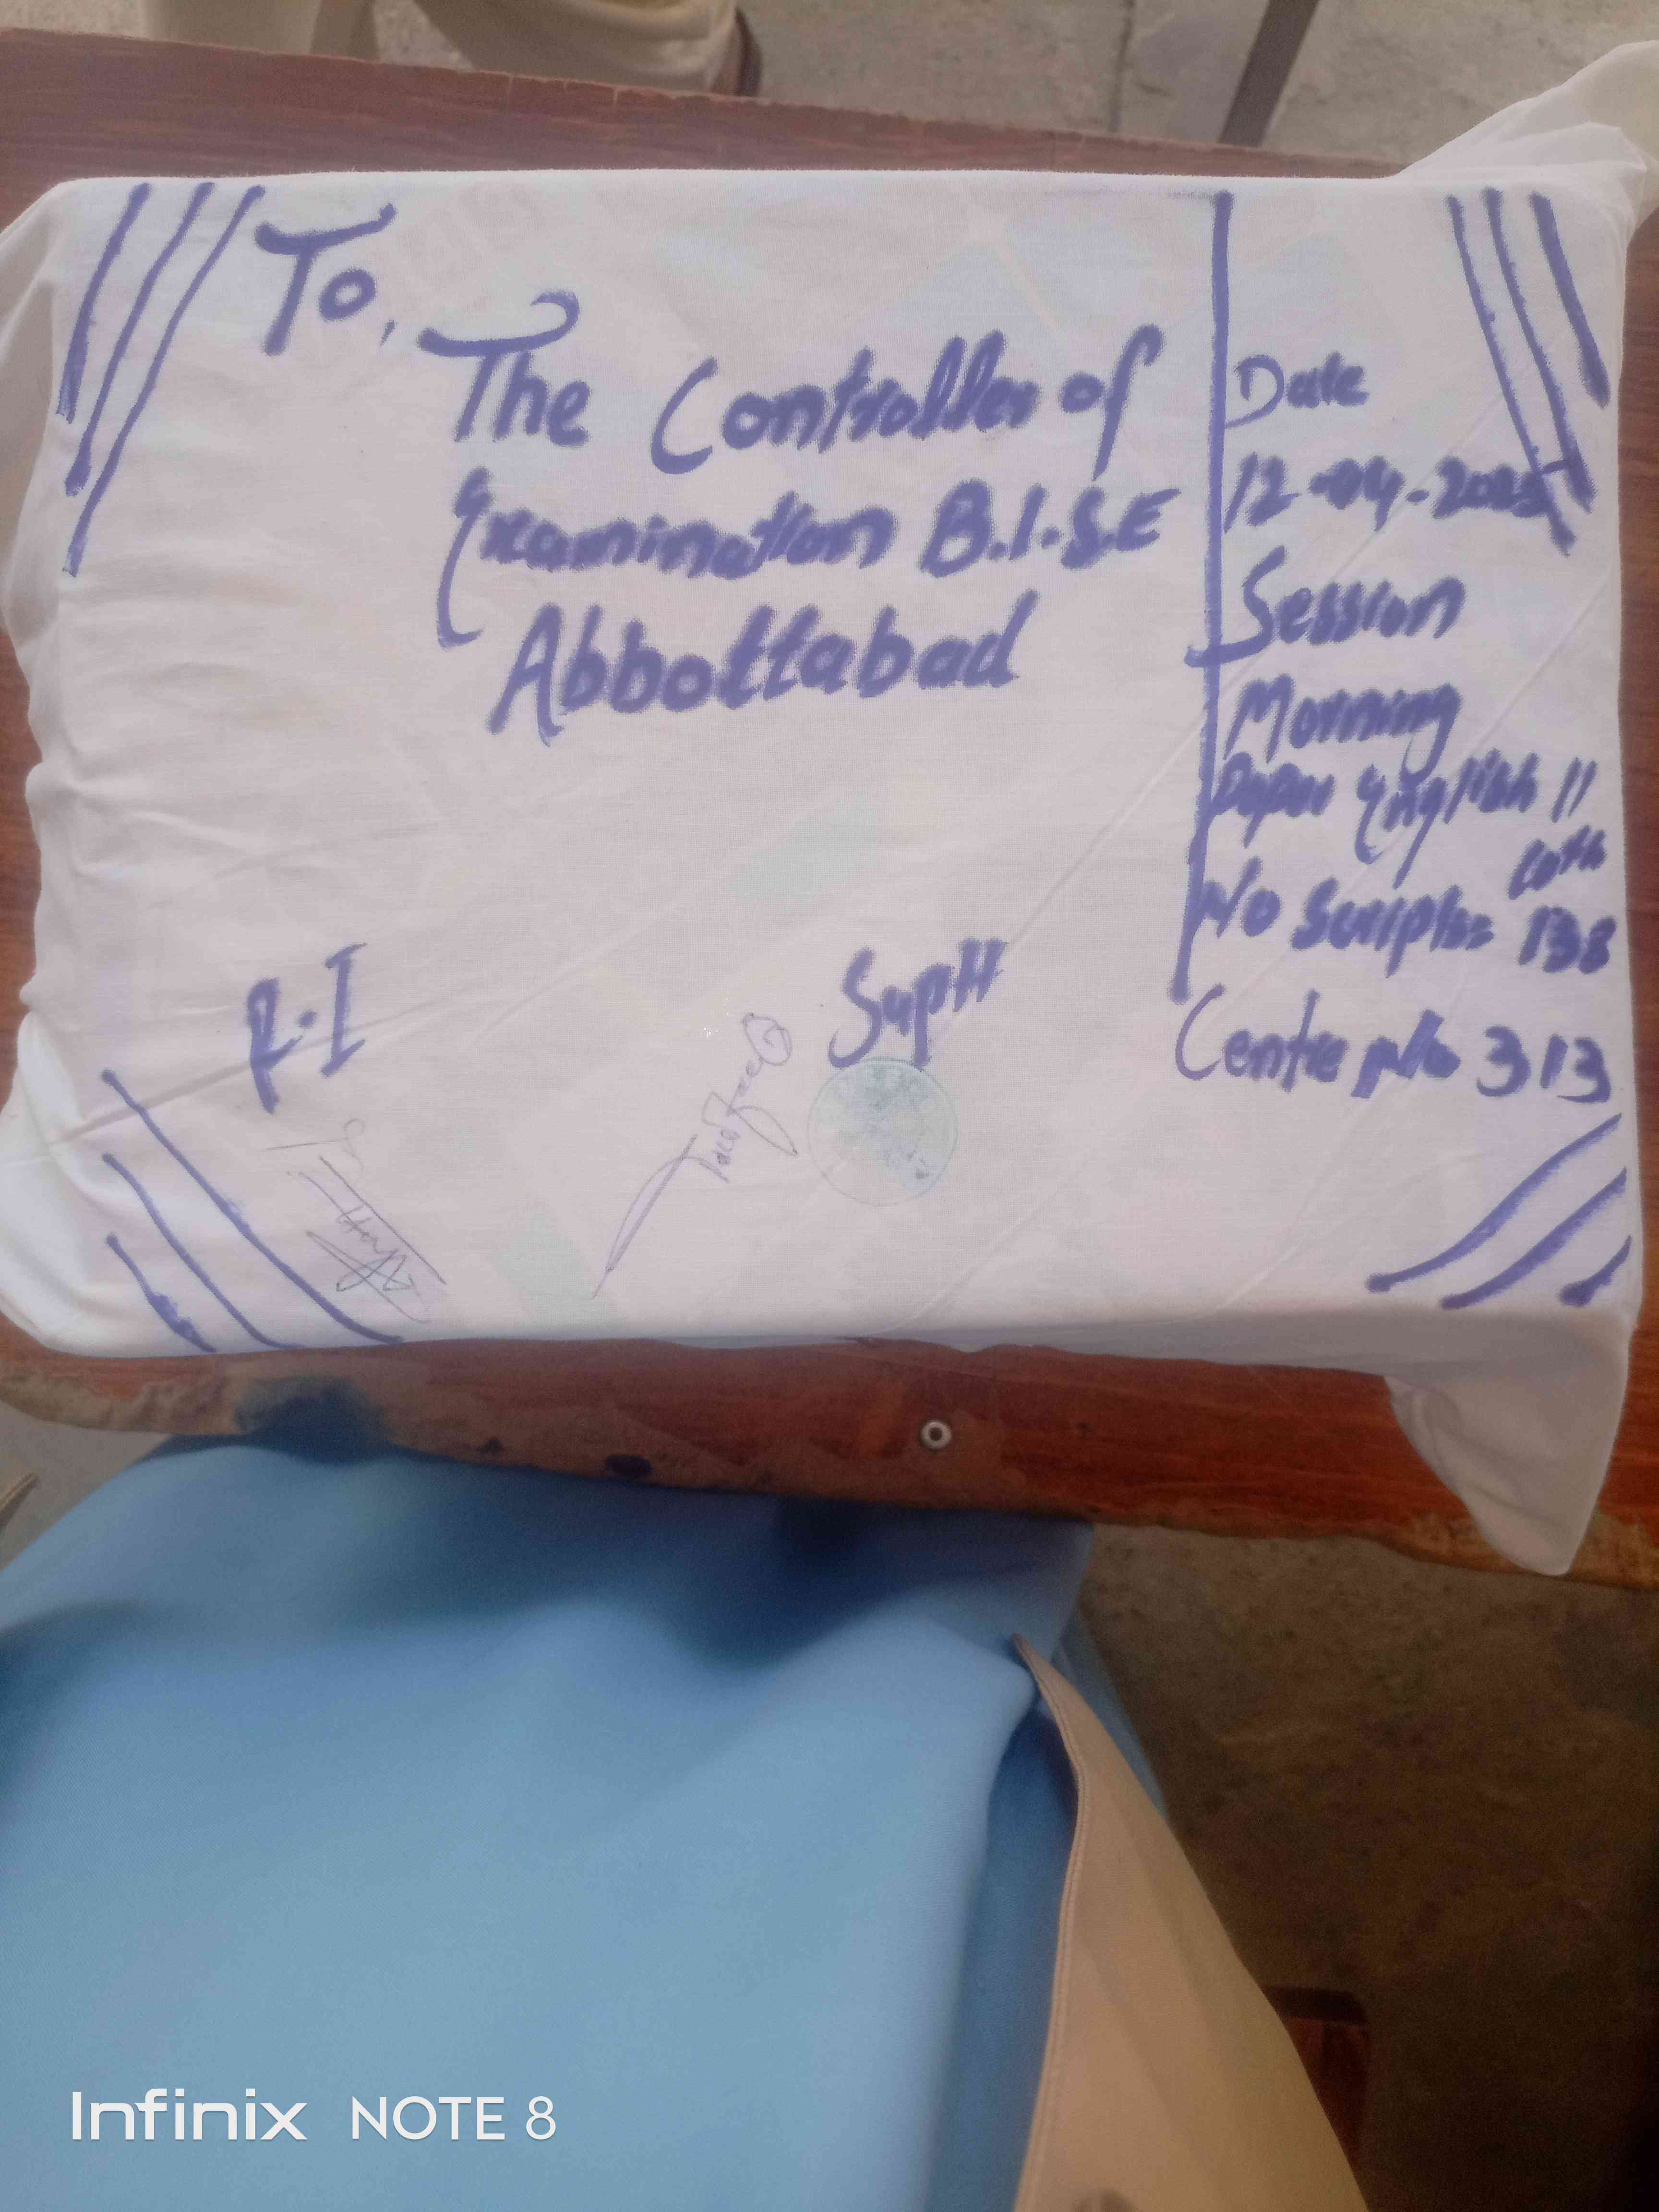 To,
The Controller of
Examination B.I.S.E
Abbottabad
Date
12-04-2025
Session
Morning
Paper English II
10th
N/o Scripts= 138
Centre No 313
R.I
Suptt
Infinix NOTE 8